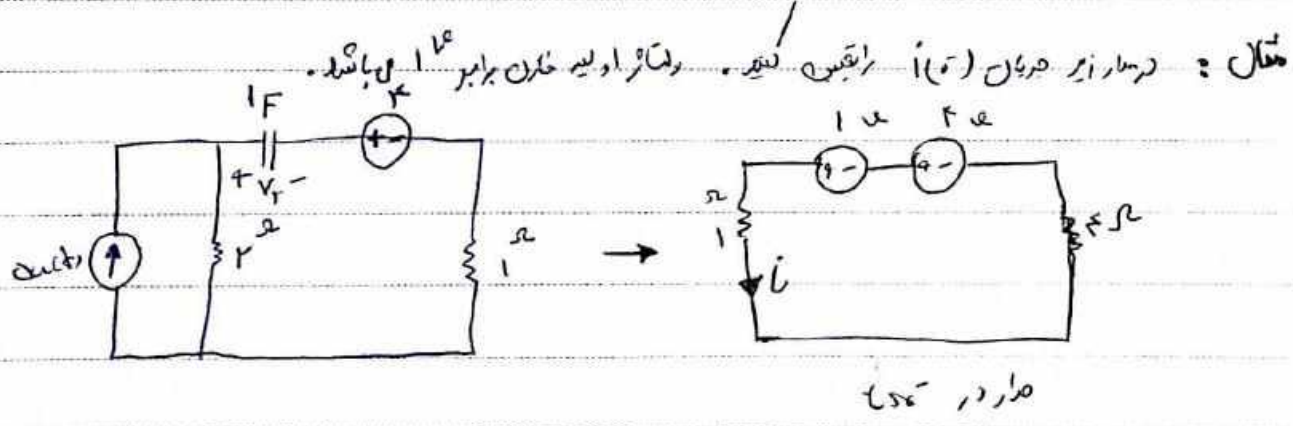 مثال : در مدار زیر جریان i(0⁻) را تعیین کنید . ولتاژ اولیه خازن برابر 1v می باشد .
1F
+ -
+ Vc -
2Ω
1Ω
→
1v
4v
1Ω
i
4Ω
مدار در t=0⁻